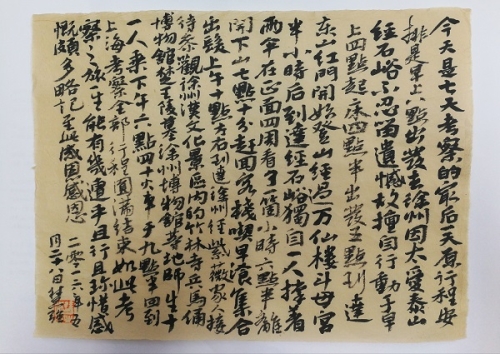 今天是七天考察的最后一天原行程安
排是早上八点出发去徐州因太爱泰山
经石峪不忍留遗憾故擅自行动于早
上四点起床四点半出发五点到达
东山红门开始登山经过万仙楼斗母宫
半小时后到达经石峪独自一人撑着
雨伞在正面四周看了一个小时六点半离
开下山七点十分赶回客栈吃早餐集合
出发上午十点左右到达徐州经紫薇家人接
待参观徐州汉文化景区内的竹林寺兵马俑
博物馆楚王陵墓徐州博物馆等地师生十
一人乘下午六点四十火车于九点半回到
上海考察全部行程圆满结束如此考
察之旅一生能有几遭平且行且珍惜感
慨颇多略记至此感因感恩
二零一六年五
月二八日